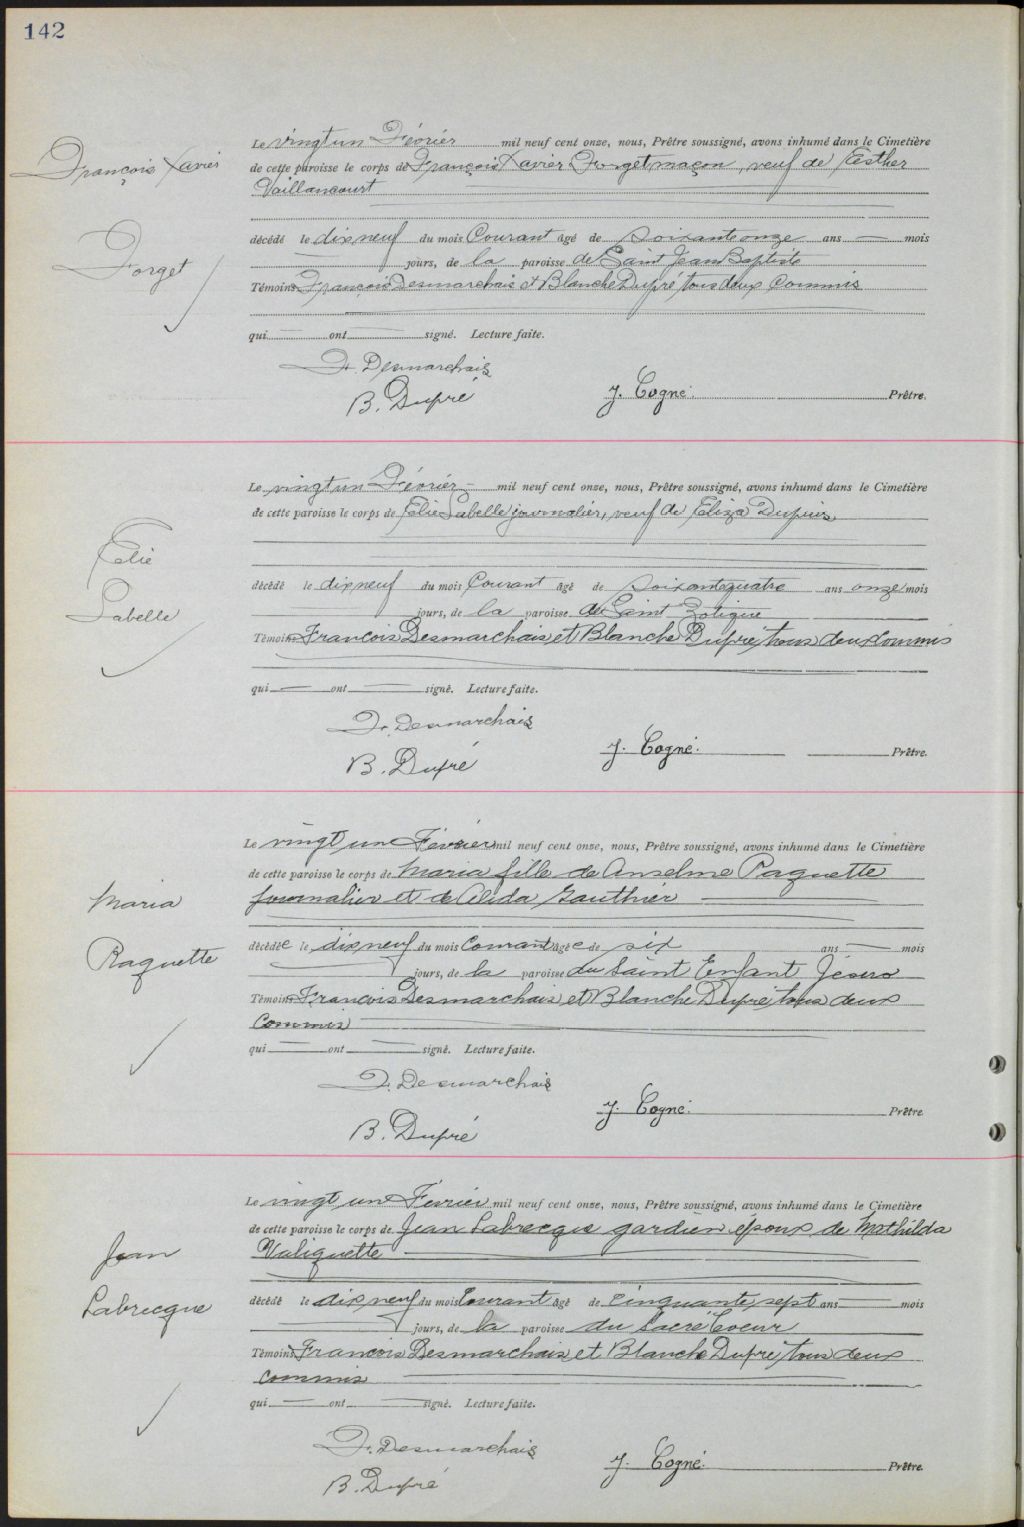 142
François Xavier
Forget
Le vingt un Février mil neuf cent onze, nous, Prêtre soussigné, avons inhumé dans le Cimetière
de cette paroisse le corps de François Xavier Forget maçon, veuf de Esther
Vaillancourt
décédé le dix neuf du mois Courant âgé de soixante onze ans — mois
— jours, de la paroisse de Saint Jean Baptiste
Témoins François Desmarchais et Blanche Dupré, tous deux Commis
qui — ont — signé. Lecture faite.
Fr. Desmarchais
B. Dupré
J. Cogné. Prêtre.
Elie
Labelle
Le vingt un Février – mil neuf cent onze, nous, Prêtre soussigné, avons inhumé dans le Cimetière
de cette paroisse le corps de Elie Labelle journalier, veuf de Eliza Dupuis
décédé le dix neuf du mois Courant âgé de soixante quatre ans onze mois
jours, de la paroisse de Saint Zotique
Témoins François Desmarchais et Blanche Dupré, tous deux commis
qui — ont — signé. Lecture faite.
Fr. Desmarchais
B. Dupré
J. Cogné. Prêtre.
Maria
Paquette
Le vingt un Février mil neuf cent onze, nous, Prêtre soussigné, avons inhumé dans le Cimetière
de cette paroisse le corps de Maria fille de Anselme Paquette
journalier et de Alida Gauthier
décédée le dix neuf du mois Courant âgée de six ans — mois
— jours, de la paroisse du Saint Enfant Jésus
Témoins François Desmarchais et Blanche Dupré, tous deux
commis
qui — ont — signé. Lecture faite.
F. Desmarchais
B. Dupré
J. Cogné. Prêtre
Jean
Labrecque
Le vingt un Février mil neuf cent onze, nous, Prêtre soussigné, avons inhumé dans le Cimetière
de cette paroisse le corps de Jean Labrecque gardien époux de Mathilda
Valiquette
décédé le dix neuf du mois Courant âgé de cinquante sept ans — mois
— jours, de la paroisse du Sacré Coeur
Témoins François Desmarchais et Blanche Dupré, tous deux
commis
qui — ont — signé. Lecture faite.
Fr. Desmarchais
B. Dupré
J. Cogné. Prêtre.